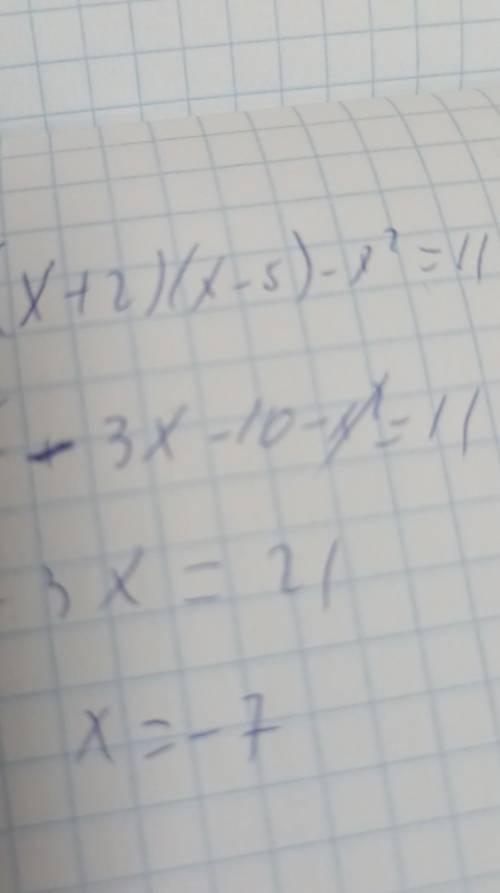 (x+2)(x-5)-x²=11
- 3x-10-x²=11
- 3x = 21
x=-7